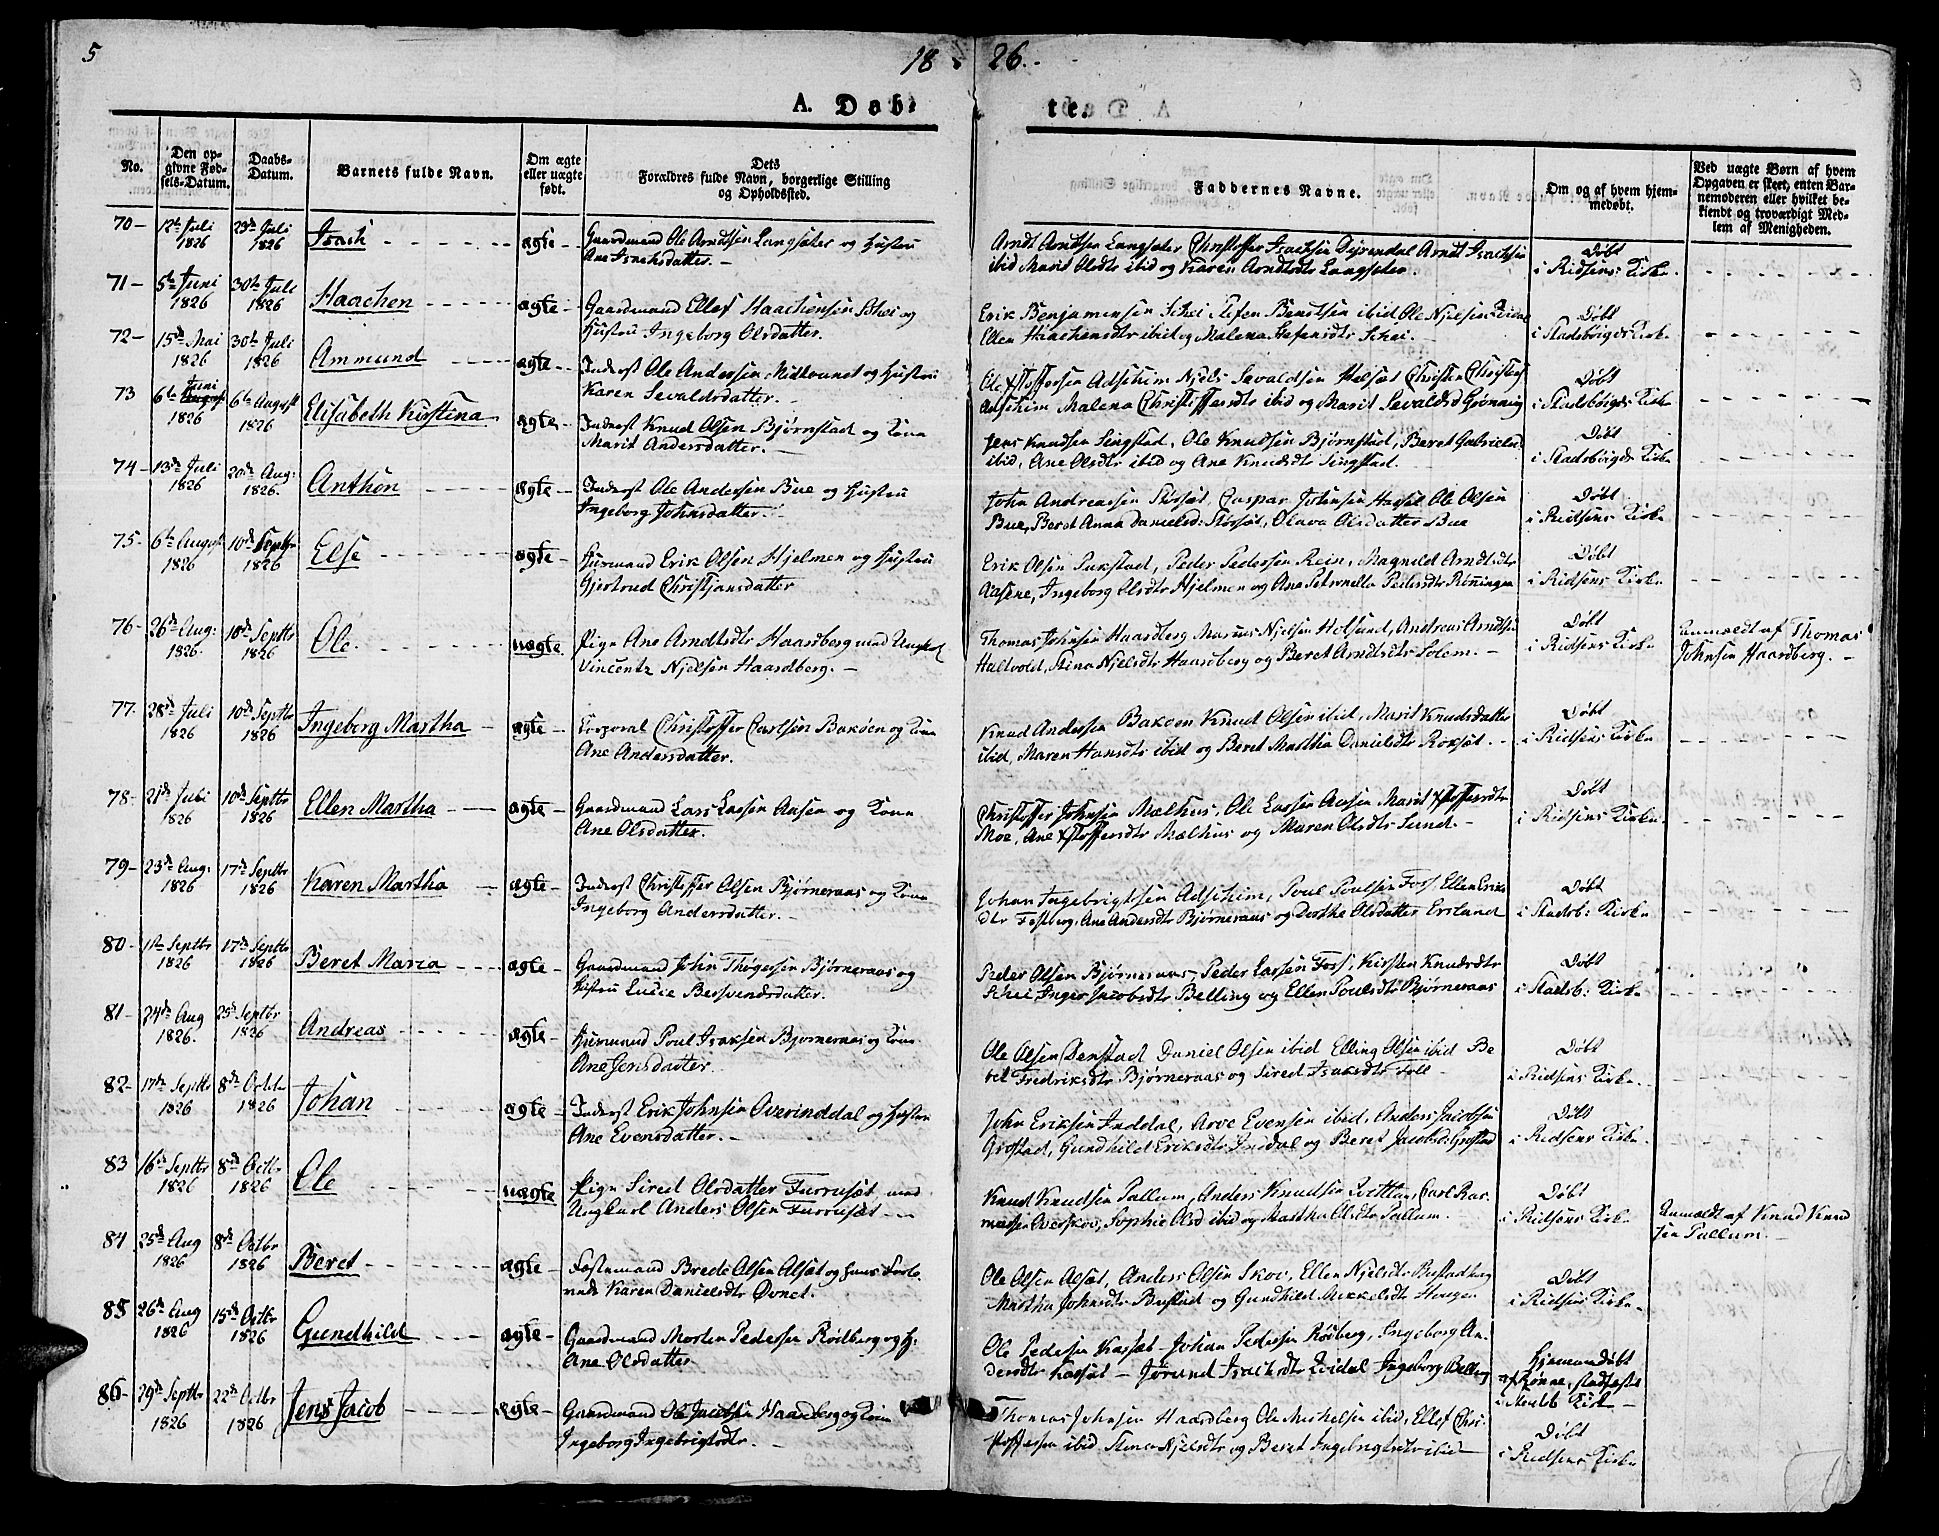 5
18 26.
A. Døbte.
No.
Den opgivne Fødsels-Datum.
Daabs-Datum.
Barnets fulde Navn.
Om ægte eller uægte født.
Dets Forældres fulde Navn, borgerlige Stilling og Opholdssted.
Faddernes Navne.
Om og af hvem hjemmedøbt.
Ved uægte Børn af hvem Opgaven er skeet, enten Barnemoderen eller hvilket bekiendt og troværdigt Medlem af Menigheden.
70- 12te Juli 1826 23de Juli 1826 Isach ægte-
Gaardmand Ole Arndtsen Langsæter og Hustru
Ane Isachsdatter.
Arndt Arndtsen Langsæter Christoffer Isachsen Arndt Isachsen
ibid Marit Olsdtr ibid og Karen Arndtsdtr Langsæter.
Døbt
i Ridsens Kirke
71- 5te Juni 1826 30te Juli 1826 Haachen ægte-
Gaardmand Ellef Haachensen Schei og
Hustru Ingeborg Olsdatter.
Erik Benjaminsen Schei Bendtsen ibid Ole Njelsen
Ellen Haachensdtr ibid og Malena Schei.
Døbt
i Stadsbøigds Kirke
72- 15de Mai 1826 30te Juli 1826 Ammund ægte-
Inderst Ole Andersen og Hustru
Karen Sevaldsdatter.
Ole Xstoffersen Adseheim Njels Sevaldsen Christen
Malena Christoffersdtr ibid og Marit Sevaldsd Grønning
Døbt
i Stadsbøigds Kirke
73 6te Juni 1826 6te August 1826 Elisabeth Kirstina ægte-
Inderst Knud Olsen Bjørnstad og Kone
Marit Andersdatter.
Jens Knudsen Singstad, Ole Knudsen Bjørnstad, Beret
ibid, Ane Olsdtr ibid og Ane Knudsdtr Singstad.
Døbt
i Stadsbøigds Kirke
74- 13de Juli 1826 20de Aug: 1826. Anthon ægte-
Inderst Ole Andersen Bue og Hustru
Ingeborg Johnsdatter.
John Andreassen Størsæt, Caspar Johnsen Ole Olsen
Bue, Beret Anna Danielsd: Størsæt, Olava Olsdatter Bue
Døbt
i Ridsens Kirke
75- 6te August 1826 10de Septbr 1826 Else ægte-
Huusmand Erik Olsen Hjelmen og Hustru
Gjertrud Christjansdatter
Erik Olsen Peder Pedersen Rein, Magnild Arndtsdtr
Ingeborg Olsdtr Hjelmen og Ane Petronella Pedersdtr Rønningen
Døbt
i Ridsens Kirke
76- 26de Aug: 1826. 10de Septbr 1826 Ole. uægte.
Pige Ane Arndtsdtr Haardberg med Ungkarl
Vincentz Njelsen Haardberg.
Thomas Johnsen Haardberg Marius Njelsen Andreas Arndtsen
Stina Njelsdtr Haardberg og Beret Arndtsdtr Solem.
Døbt
i Ridsens Kirke
Anmeldt af Thomas
Johnsen Haardberg.
77. 28de Juli 1826 10de Septbr 1826 Ingeborg Martha ægte-
Corporal Christoffer Carlsen Bakøen og Kone
Ane Andersdatter.
Knud Andersen Bakøen Knud Olsen ibid, Marit Knudsdatter
ibid, Maren Hansdtr ibid og Beret Martha Danielsdtr Roksæt.
Døbt
i Ridsens Kirke
78- 21de Juli 1826 10de Septbr 1826 Ellen Martha ægte-
Gaardmand Lars Larsen Aasen og Kone
Ane Olsdatter.
Christoffer Johnsen Mælhus, Ole Larsen Aasen Marit Xstoffersdtr
Moe, Ane Xstoffersdtr Mælhus og Maren Olsdtr Sund.
Døbt
i Ridsens Kirke
79- 23de Aug: 1826 17de Septbr 1826 Karen Martha ægte-
Inderst Christoffer Olsen Bjørneraas og Kone
Ingeborg Andersdatter.
Johan Ingebrigtsen Adseheim, Poul Poulsen Foss, Ellen Eriks
dtr Ane Andersdtr Bjørneraas og Dorthe Olsdatter
Døbt
i Stadsb: Kirke
80- 1ste Septbr 1826 17de Septbr 1826 Beret Maria ægte-
Gaardmand John Thøgersen Bjørneraas og
Hustru Lucie Besvendsdatter.
Peder Olsen Bjørneraas, Peder Larsen Foss, Kirsten Knudsdtr
Schei Inger Jacobsdtr Belling og Ellen Poulsdtr Bjørneraas
Døbt
i Stadsb: Kirke
81- 24de Aug 1826. 25de Septbr 1826 Andreas ægte-
Huusmand Poul Isaksen Bjørneraas og Kone
Ane Jensdatter.
Ole Olsen Denstad Daniel Olsen ibid Elling Olsen ibid Be
ret Fredriksdtr Bjørneraas og Sired Isaksdtr Foll
Døbt
i Ridsens Kirke
82- 17de Septbr 1826 8de Octbr 1826 Johan ægte-
Inderst Erik Johnsen Overinddal og Hustru
Ane Evensdatter.
John Eriksen Inddal, Arve Evensen ibid, Anders Jacobsen
Grøstad, Gundhild Eriksdtr Inddal og Beret Jacobsd: Grøstad
Døbt
i Ridsens Kirke
83 16de Septbr 1826 8de Octbr 1826 Ole uægte
Pige Sired Olsdatter Furrusæt med
Ungkarl Anders Olsen Furrusæt
Knud Knudsen Pallum, Anders Knudsen Carl Ras-
mussen Overskov, Sophie Olsd ibid og Martha Olsdtr Pallum.
Døbt
i Ridsens Kirke
Anmeldt af Knud Knud
sen Pallum.
84 25de Aug 1826 8de Octbr 1826 Beret ægte-
Fæstemand Brede Olsen Alsæt og hans Trolo-
vede Karen Danielsdtr
Ole Olsen Alsæt, Anders Olsen Skov, Ellen Njelsdtr
Martha Johnsdtr Bustad og Gundhild Mikkelsdtr Hauge
Døbt
i Ridsens Kirke
85 26de Aug 1826 15de Octbr 1826 Gundhild ægte-
Gaardmand Morten Pedersen Rødberg og H:
Ane Olsdatter
Ole Pedersen Kassæt Johan Pedersen Rødberg, Ingeborg An-
dersdtr Kassæt Jørend Isachsdtr Ingeborg Belling
Hjemmedøbt
af Rønne, stadfæstet
i Stadsb Kirke
86- 29de Septbr 1826 22de Octbr 1826 Jens Jacob ægte-
Gaardmand Ole Jacobsen Haardberg og Kone
Ingeborg Ingebrigtsdtr.
Thomas Johnsen Haardberg Ole Michelsen ibid, Ellef Chri-
stoffersen ibid Stina Njelsdtr og Beret Ingebrigtsdtr ibid
Døbt
i Ridsens Kirke